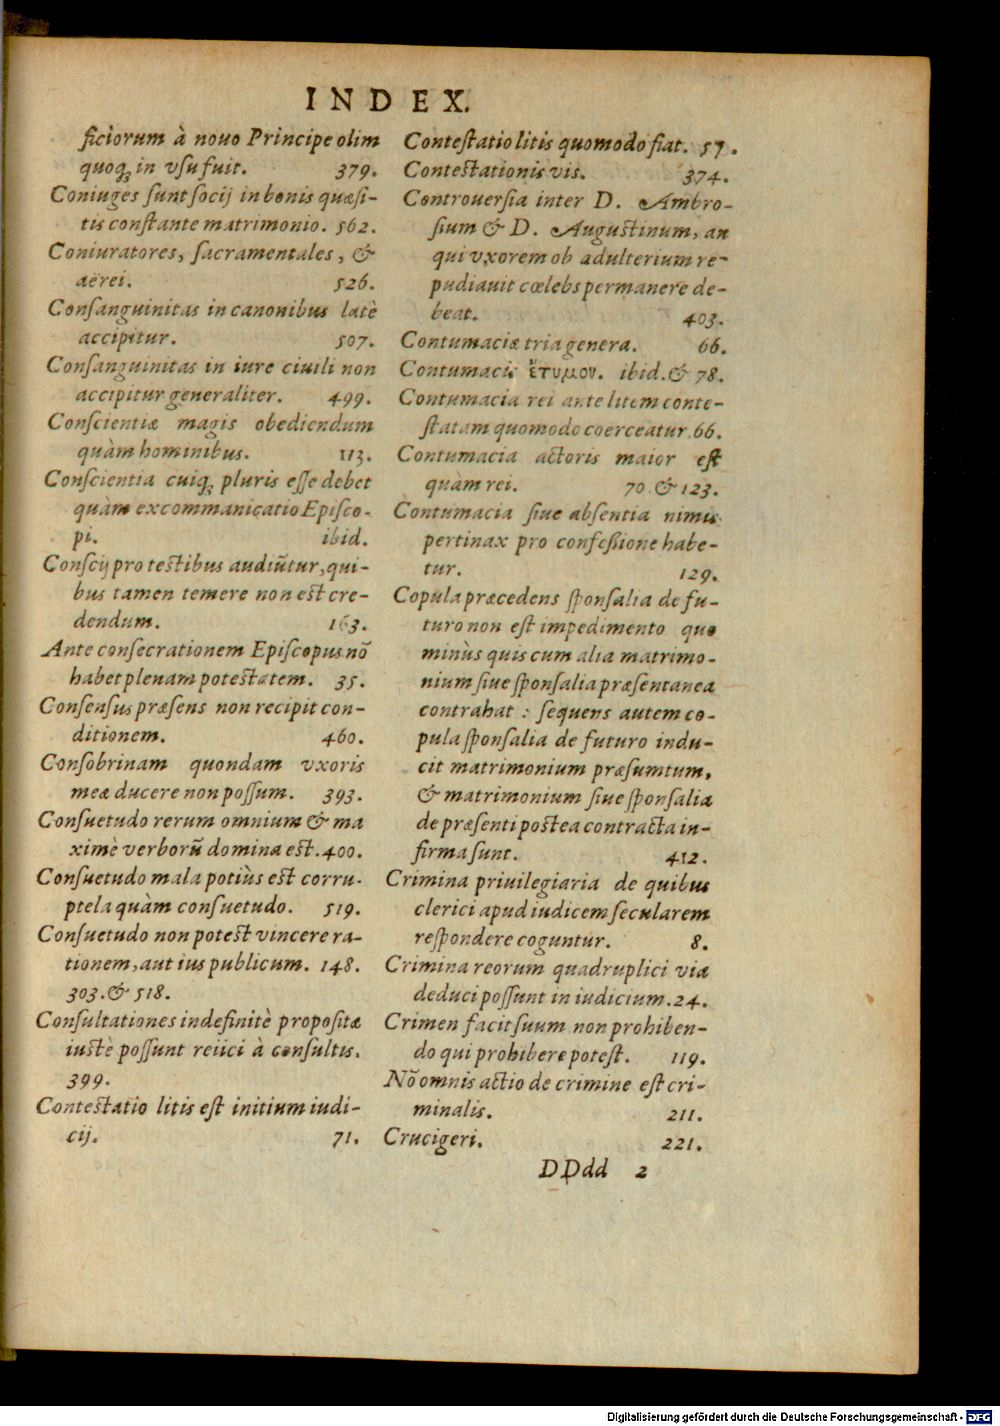 INDEX.
ficiorum à nouo Principe olim
quoq; in vsu fuit. 379.
Coniuges sunt socij in bonis quæsi-
tis constante matrimonio. 562.
Coniuratores, sacramentales, &
aërei. 526.
Consanguinitas in canonibus latè
accipitur. 507.
Consanguinitas in iure ciuili non
accipitur generaliter. 499.
Conscientiæ magis obediendum
quàm hominibus. 113.
Conscientia cuiq; pluris esse debet
quàm excommanicatio Episco-
pi. ibid.
Conscij pro testibus audiũtur, qui-
bus tamen temere non est cre-
dendum. 163.
Ante consecrationem Episcopus nõ
habet plenam potestatem. 35.
Consensus præsens non recipit con-
ditionem. 460.
Consobrinam quondam vxoris
meæ ducere non possum. 393.
Consuetudo rerum omnium & ma
ximè verborũ domina est. 400.
Consuetudo mala potiùs est corru-
ptela quàm consuetudo. 519.
Consuetudo non potest vincere ra-
tionem, aut ius publicum. 148.
303. & 518.
Consultationes indefinitè propositæ
iustè possunt reiici à consultis.
399.
Contestatio litis est initium iudi-
cij. 71.
Contestatio litis quomodo fiat. 57.
Contestationis vis. 374.
Controuersia inter D. Ambro-
sium & D. Augustinum, an
qui vxorem ob adulterium re-
pudiauit cœlebs permanere de-
beat. 403.
Contumaciæ tria genera. 66.
Contumacis ἔτυμον. ibid. & 78.
Contumacia rei ante litem conte-
statam quomodo coerceatur. 66.
Contumacia actoris maior est
quàm rei. 70. & 123.
Contumacia siue absentia nimis
pertinax pro confessione habe-
tur. 129.
Copula præcedens sponsalia de fu-
turo non est impedimento quo
minùs quis cum alia matrimo-
nium siue sponsalia præsentanea
contrahat : sequens autem co-
pula sponsalia de futuro indu-
cit matrimonium præsumtum,
& matrimonium siue sponsalia
de præsenti postea contracta in-
firma sunt. 412.
Crimina priuilegiaria de quibus
clerici apud iudicem secularem
respondere coguntur. 8.
Crimina reorum quadruplici via
deduci possunt in iudicium. 24.
Crimen facit suum non prohiben-
do qui prohibere potest. 119.
Nõ omnis actio de crimine est cri-
minalis. 211.
Crucigeri. 221.
DDdd 2
Digitalisierung gefördert durch die Deutsche Forschungsgemeinschaft - DFG